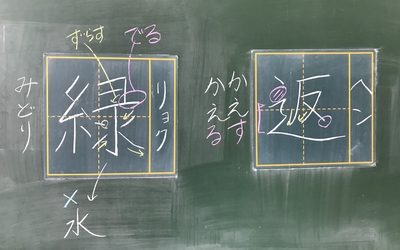 ずらす
でる
みどり
緑
リョク
×
水
かえす
かえる
返
ヘン